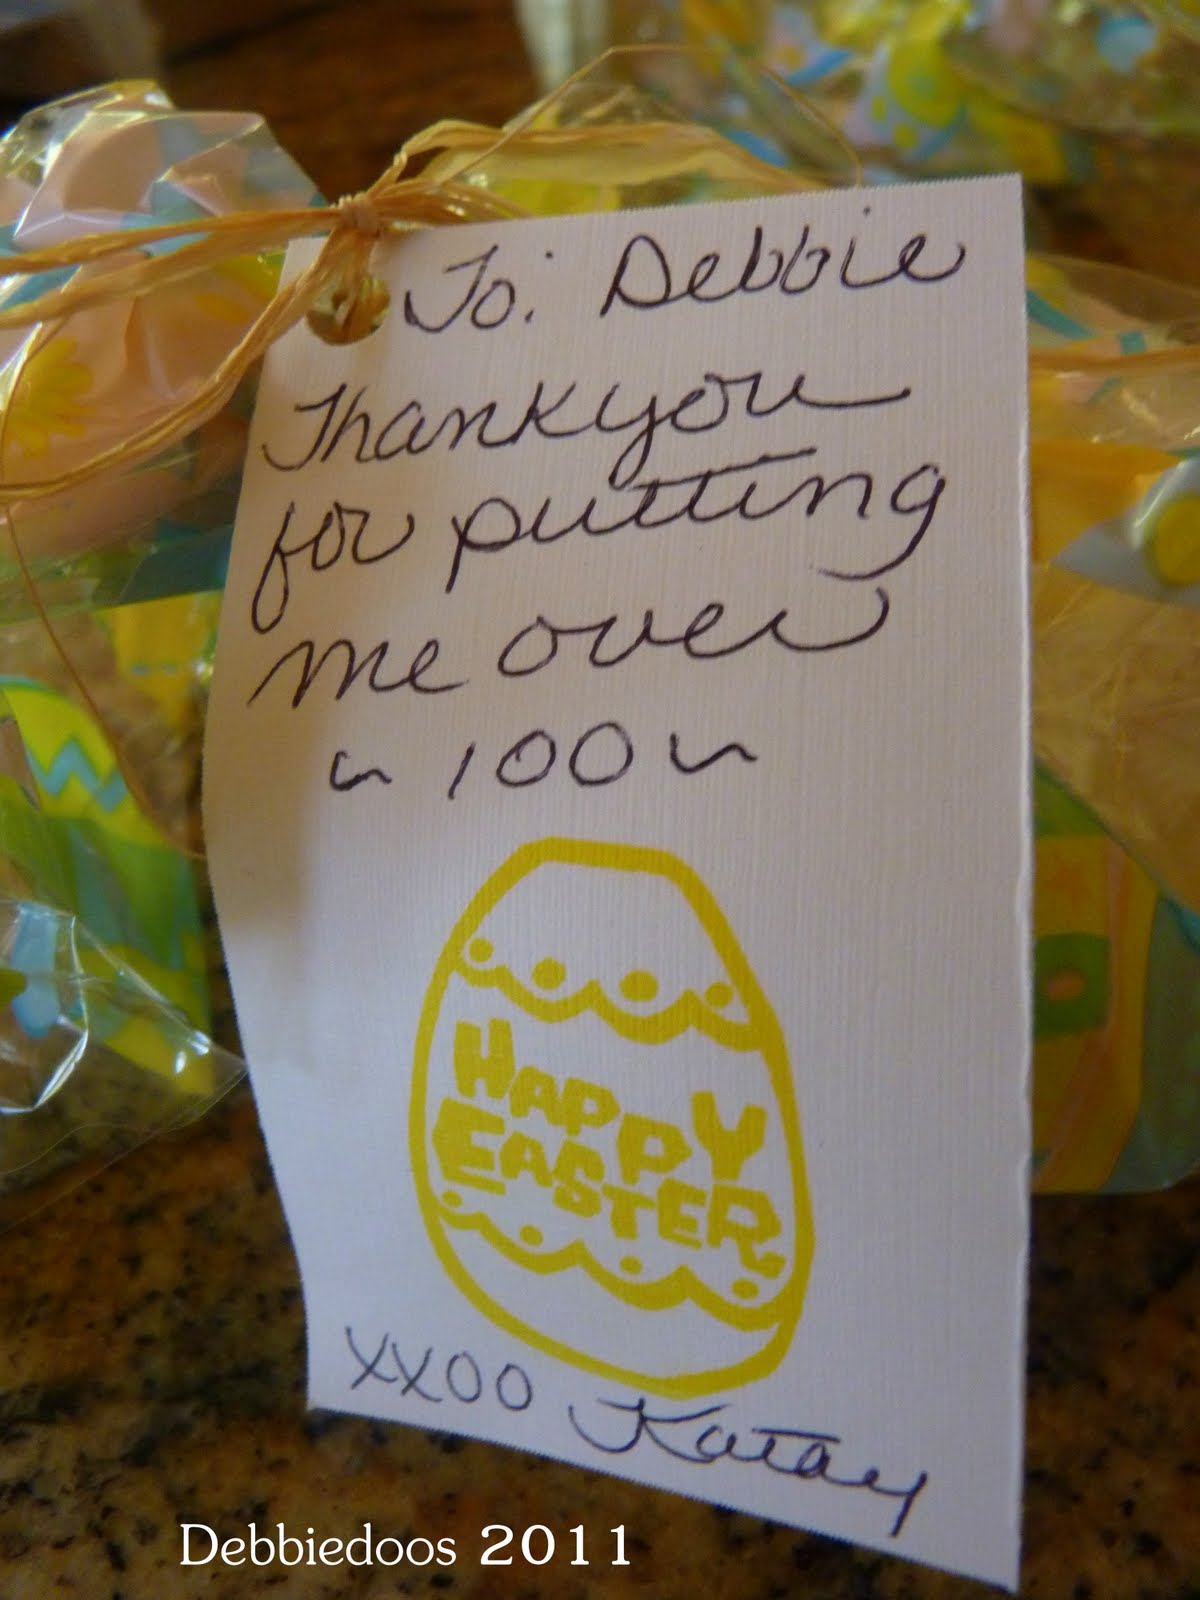 To: Debbie
Thankyou
for putting
me over
~ 100 ~
HAPPY
EASTER
XXOO
Debbiedoos 2011